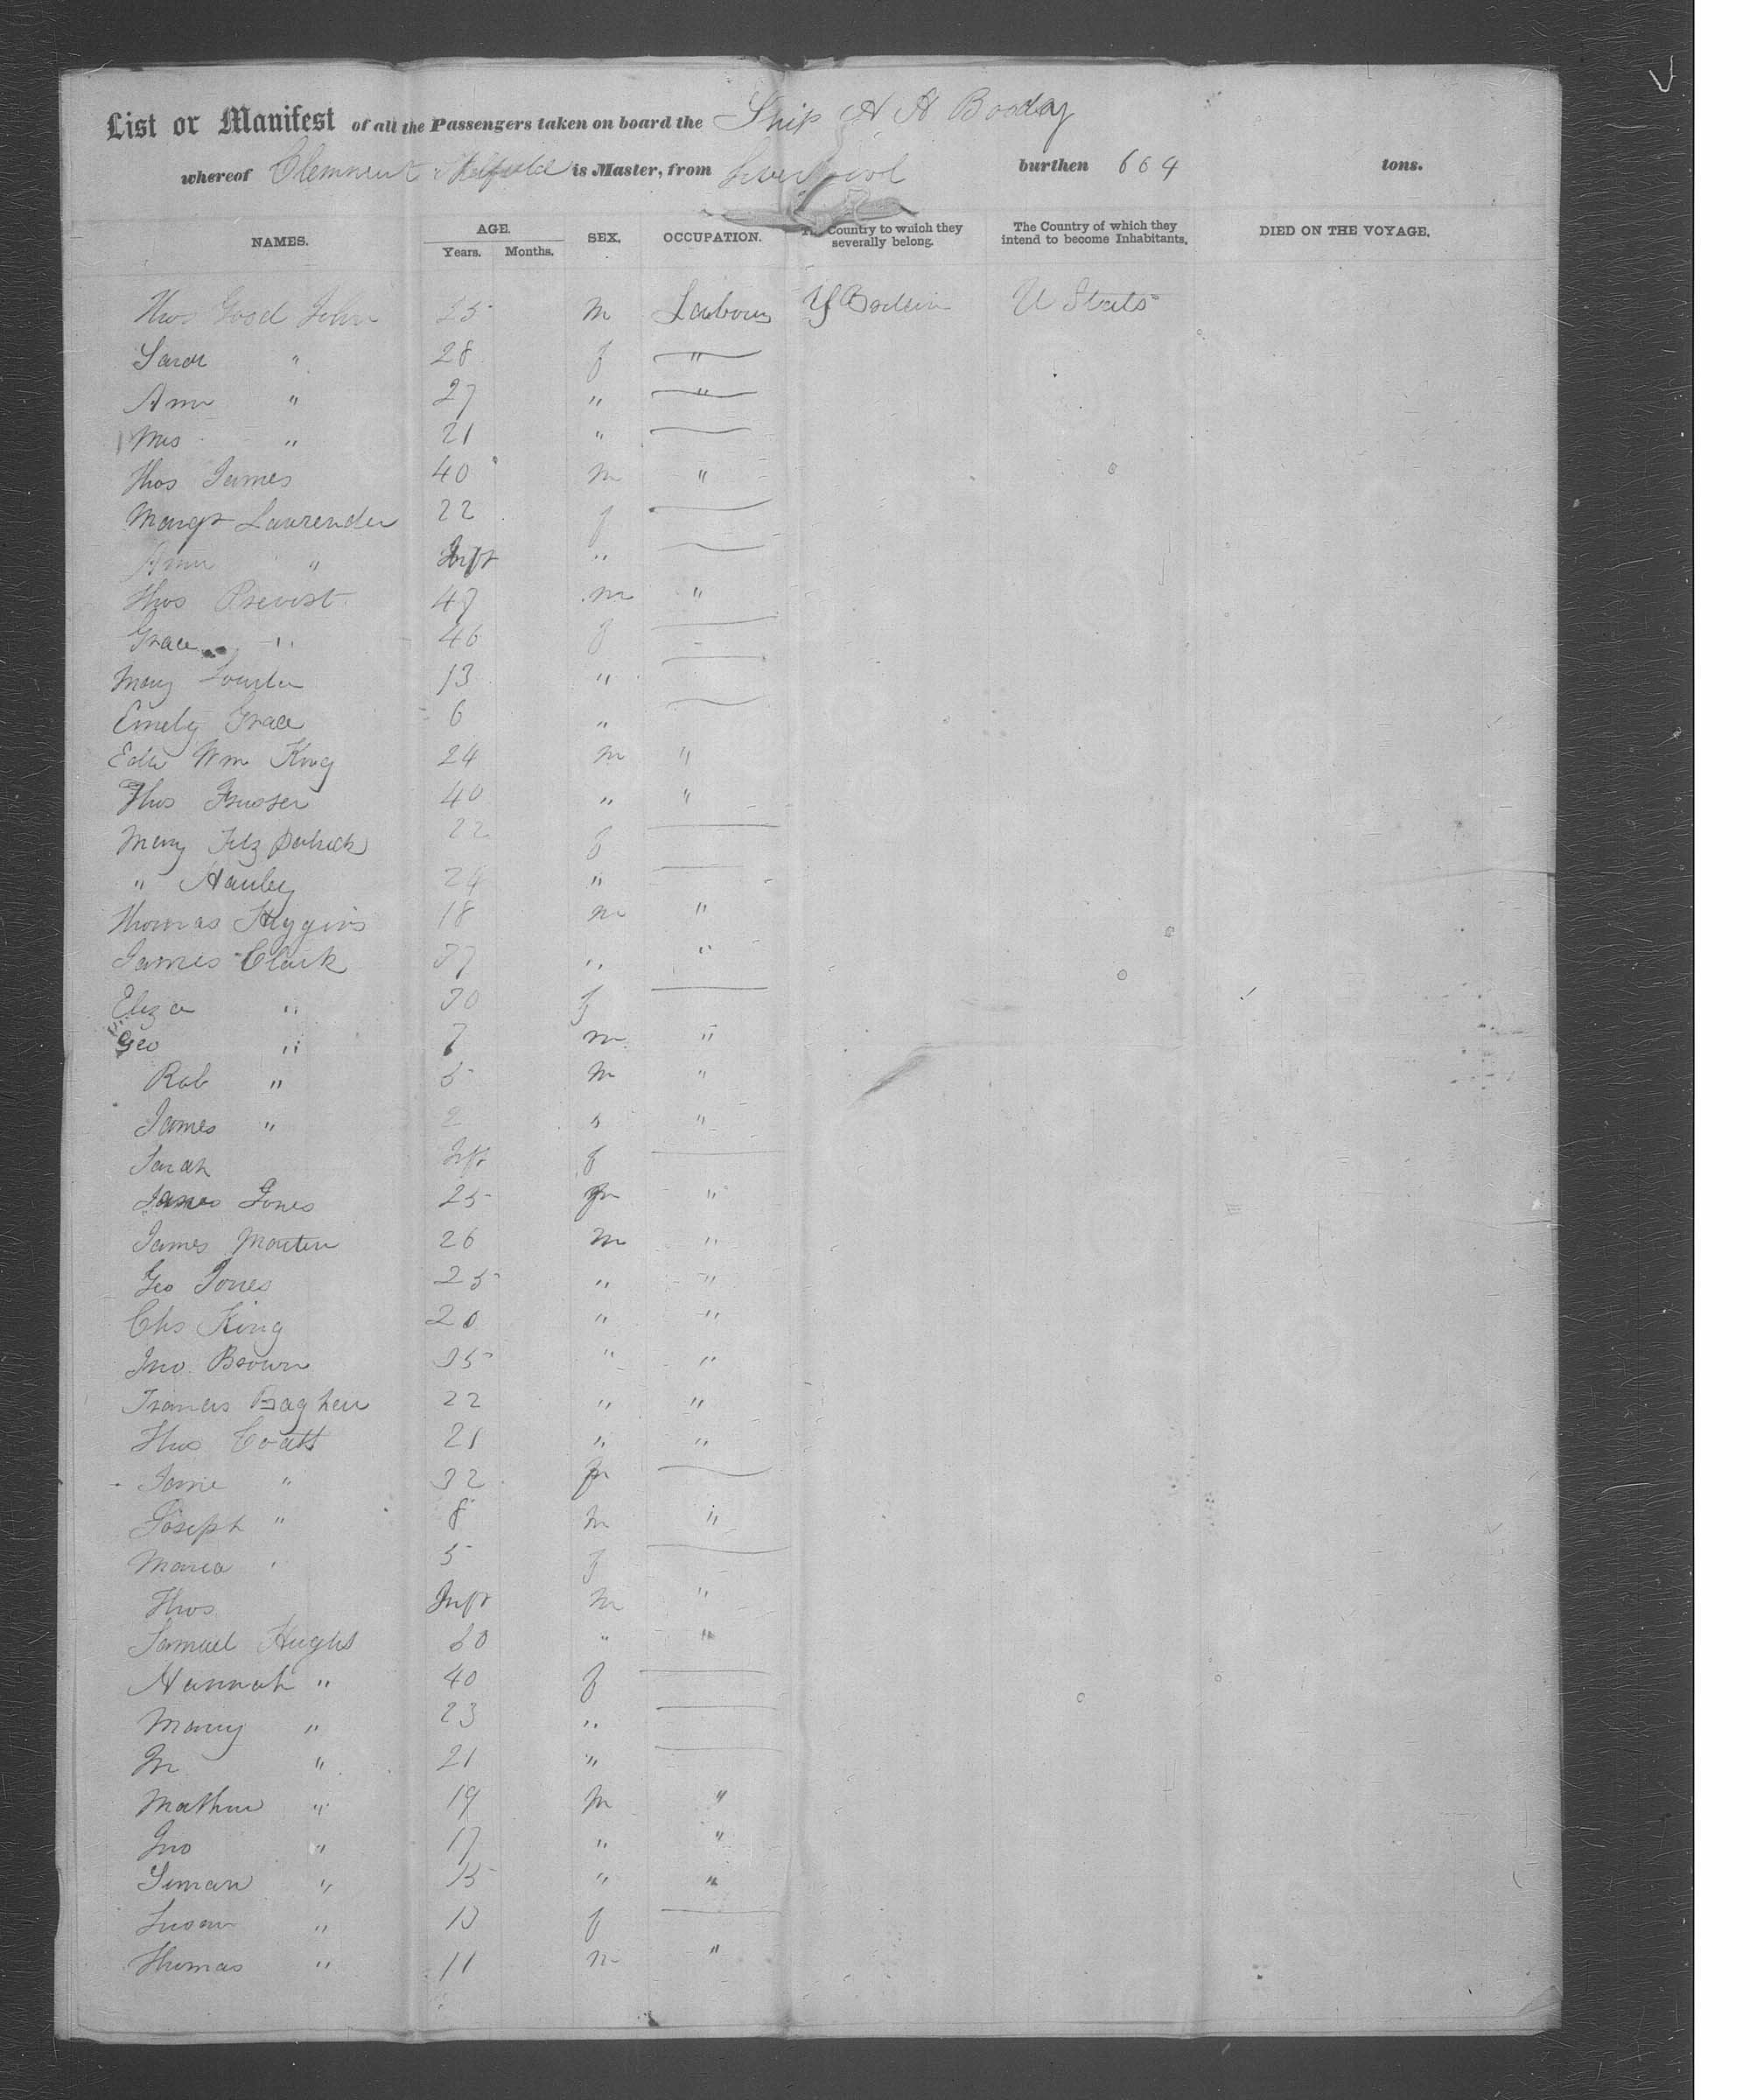 List or Manifest of all the Passengers taken on board the Ship H H Booday
whereof Clemment is Master, from Liverpool burthen 664 tons.
NAMES. AGE. Years. Months. SEX. OCCUPATION. The Country to which they severally belong. The Country of which they intend to become Inhabitants. DIED ON THE VOYAGE.
Thos Good John 25 m Labour G Brittin U States
Sarah " 28 f "
Ann " 27 " "
Mrs " 21 "
Thos James 40 m "
Margt Lavrender 22 f
Ann " Inft "
Thos Prevost 47 m "
Grace " 46 f
Mary Louisa 13 "
Emely Grace 6 "
Edw Wm King 24 m "
Thos 40 " "
Mary Fitz Patrick 22 f
" Hanley 24 "
Thomas Higgins 18 m "
James Clark 37 " "
Eliza " 30 f
Geo " 7 m "
Rob " 5 m "
James " 2 " "
Sarah Inft f
James Jones 25 m "
James Martin 26 m "
Geo Jones 25 " "
Chs King 20 " "
Jno Brown 35 " "
Francis 22 " "
Thos Coatt 21 " "
Jane " 32 f
Joseph " 8 m "
Maria " 5 f
Thos Inft m "
Samuel Hughs 50 " "
Hannah " 40 f
Mary " 23 "
M " 21 "
Mathew " 19 m "
Jno " 17 " "
Siman " 15 " "
Susan " 13 f
Thomas " 11 m "